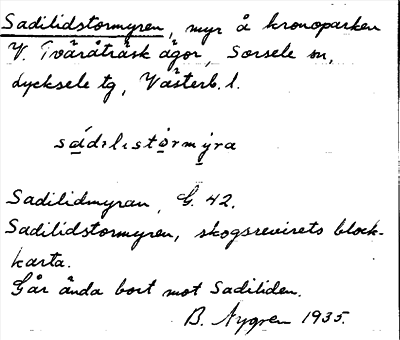 Sadilidstormyren, myr å kronoparken
V. Tvåråträsk ägor, Sorsele sn,
Lycksele tg, Västerb. l.
sádılıstòrmỳra
Sadilidmyran, G. 42.
Sadilidstormyren, skogsrevirets block-
karta.
Går ända bort mot Sadiliden.
B. Nygren 1935.